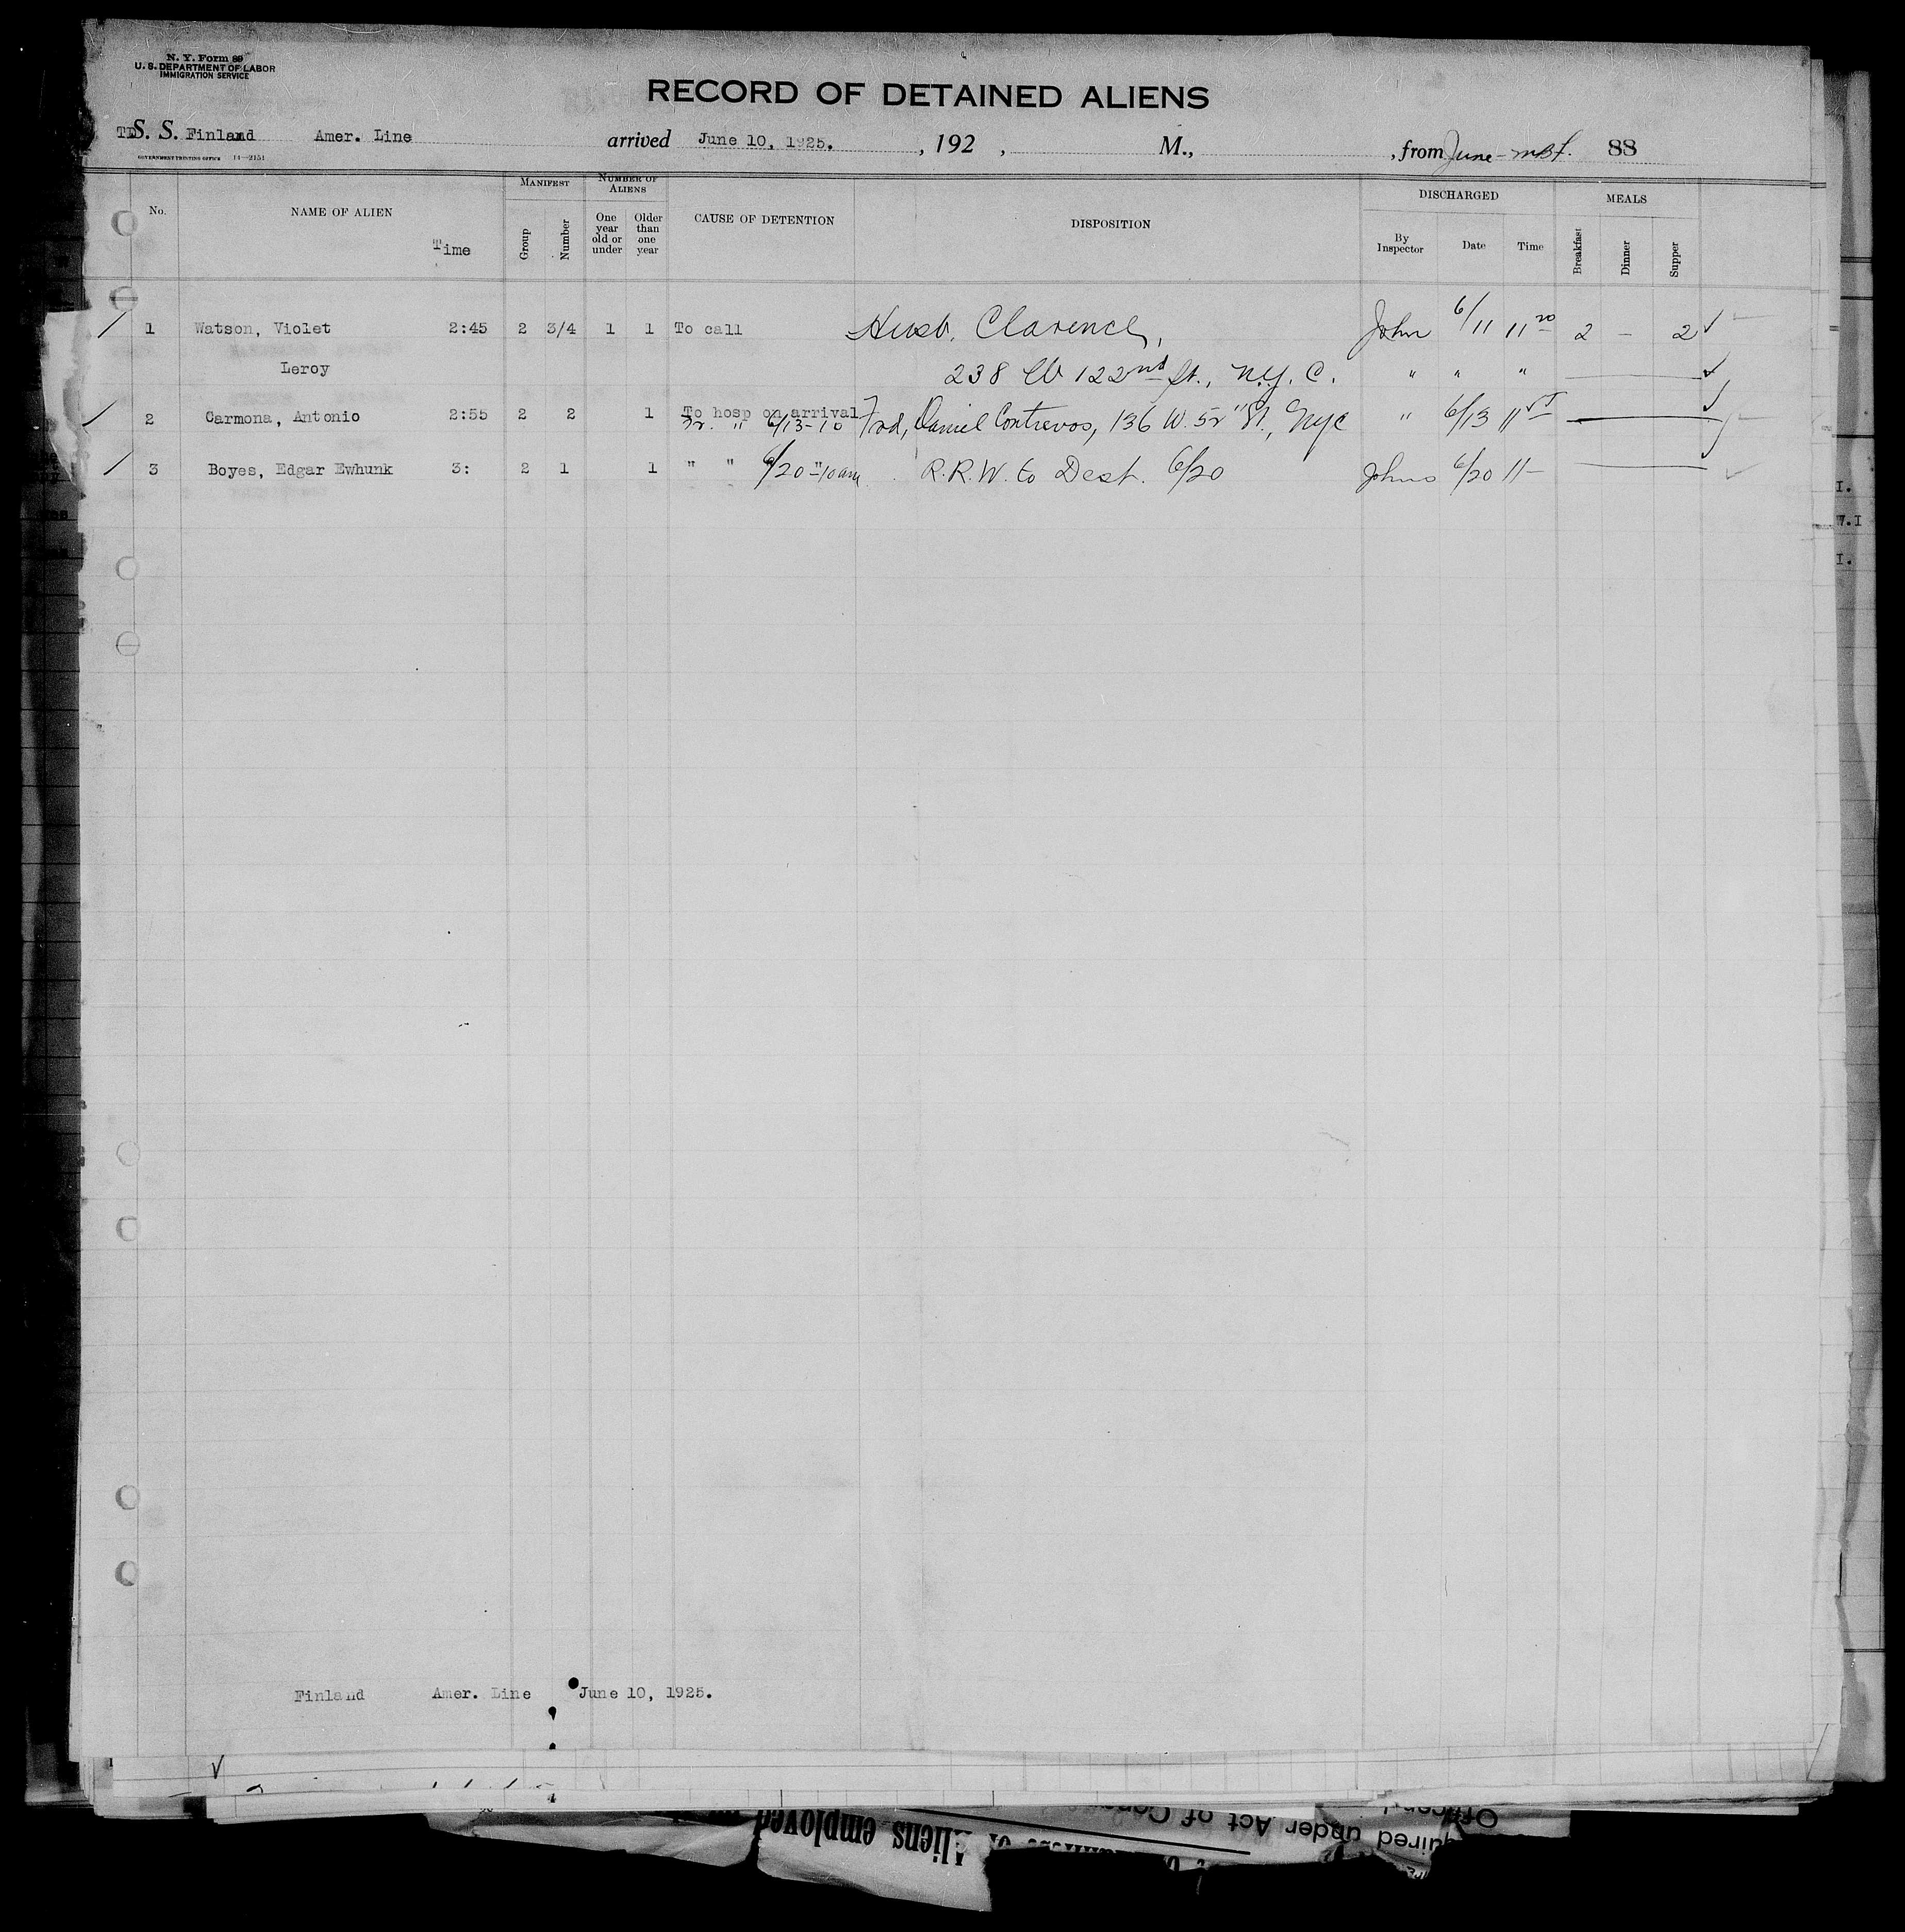 N. Y. Form 89
U. S. DEPARTMENT OF LABOR
IMMIGRATION SERVICE
RECORD OF DETAINED ALIENS
S. S. Finland Amer. Line arrived June 10, 1925. , 192 , M., , from June 88
GOVERNMENT PRINTING OFFICE 14—2151
No. NAME OF ALIEN Time MANIFEST Group Number NUMBER OF ALIENS One year old or under Older than one year CAUSE OF DETENTION DISPOSITION DISCHARGED By Inspector Date Time MEALS Breakfast Dinner Supper
/ 1 Watson, Violet 2:45 2 3/4 1 1 To call Husb, Clarence, John 6/11 11 20 2 – 2 ✓
Leroy 238 W 122nd St., N.Y. C. " " " ✓
/ 2 Carmona, Antonio 2:55 2 2 1 To hosp on arrival Frd, Daniel Contrevos, 136 W. 52" St., NYC " 6/13 11
Fr. " 6/13-10
/ 3 Boyes, Edgar Ewhunk 3: 2 1 1 " " 6/20 -10am R.R.W. to Dest. 6/20 Johns 6/20 11–
I.
W.I
I.
Finland Amer. Line June 10, 1925.
Aliens employed
quired under Act of